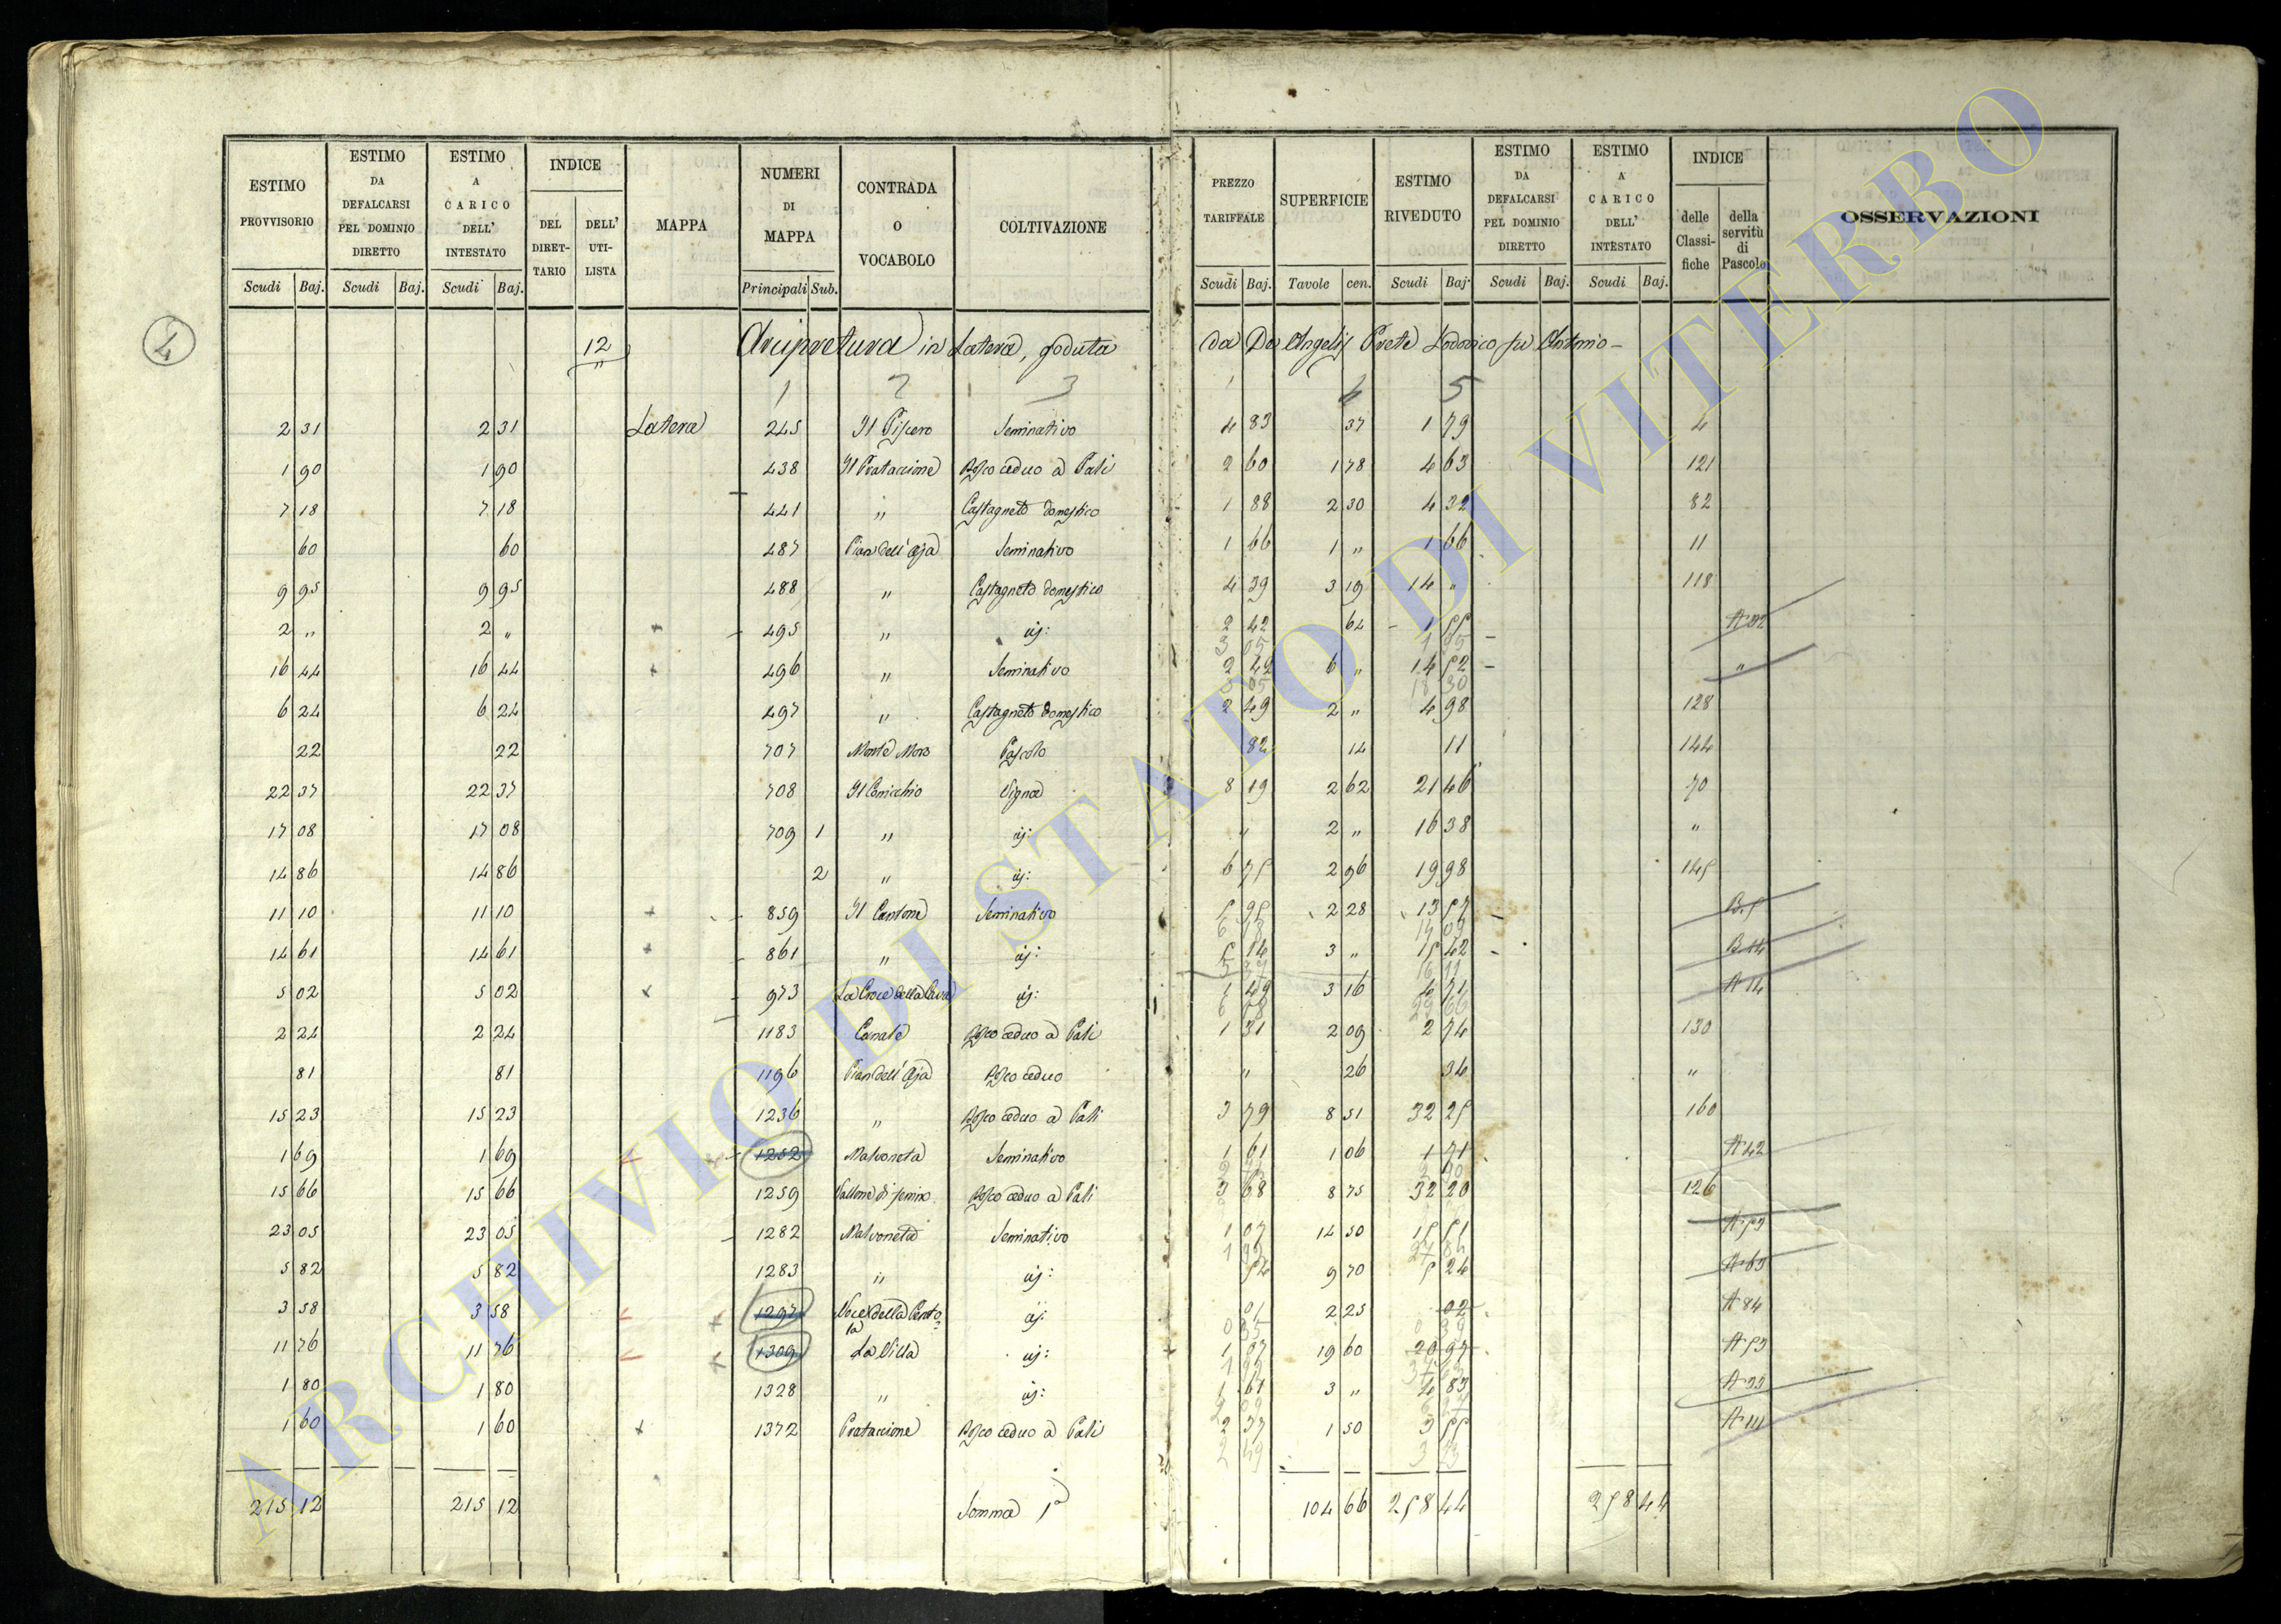 ESTIMO PROVVISORIO | ESTIMO DA DEFALCARSI PEL DOMINIO DIRETTO | ESTIMO A CARICO DELL' INTESTATO | INDICE | MAPPA | NUMERI DI MAPPA | CONTRADA O VOCABOLO | COLTIVAZIONE | PREZZO TARIFFALE | SUPERFICIE | ESTIMO RIVEDUTO | ESTIMO DA DEFALCARSI PEL DOMINIO DIRETTO | ESTIMO A CARICO DELL' INTESTATO | INDICE | OSSERVAZIONI
DEL DIRETTARIO | DELL' UTILISTA | delle Classifiche | della servitù di Pascolo
Scudi | Baj. | Scudi | Baj. | Scudi | Baj. | Principali | Sub. | Scudi | Baj. | Tavole | cen. | Scudi | Baj. | Scudi | Baj. | Scudi | Baj.
4 12 Arcipretura in Latera, goduta da De Angelis Prete Lodovico fu Antonio
1 2 3 4 5
2 31 | 2 31 | Latera | 245 | Il Piscero | Seminativo | 4 83 | 37 | 1 79 | 4
1 90 | 1 90 | 438 | Il Prataccione | Bosco ceduo a Pali | 2 60 | 1 78 | 4 63 | 121
7 18 | 7 18 | 441 | " | Castagneto domestico | 1 88 | 2 30 | 4 32 | 82
60 | 60 | 487 | Pian dell'Aja | Seminativo | 1 66 | 1 " | 1 66 | 11
9 95 | 9 95 | 488 | " | Castagneto domestico | 4 39 | 3 19 | 14 " | 118
2 " | 2 " | + | 495 | " | id: | 2 42 | 64 | 1 55 | A 32
3 05 | 1 95
16 44 | 16 44 | + | 496 | " | Seminativo | 2 42 | 6 " | 14 52 | "
3 05 | 18 30
6 24 | 6 24 | 497 | " | Castagneto domestico | 2 49 | 2 " | 4 98 | 128
22 | 22 | 707 | Monte Moro | Pascolo | 82 | 14 | 11 | 144
22 37 | 22 37 | 708 | Il Cornicchio | Vigna | 8 19 | 2 62 | 21 46 | 70
17 08 | 17 08 | 709 | 1 | " | id: | " | 2 " | 16 38 | "
14 86 | 14 86 | 2 | " | id: | 6 75 | 2 96 | 19 98 | 145
11 10 | 11 10 | + | 859 | Il Cantone | Seminativo | 5 95 | 2 28 | 13 57 | B. 5
6 18 | 14 09
14 61 | 14 61 | + | 861 | " | id: | 5 14 | 3 " | 15 42 | B 14
5 37 | 16 11
5 02 | 5 02 | + | 973 | La Croce della Cava | id: | 1 49 | 3 16 | 4 71 | A 14
2 24 | 2 24 | 1183 | Canale | Bosco ceduo a Pali | 1 31 | 2 09 | 2 74 | 130
81 | 81 | 1196 | Pian dell'Aja | Bosco ceduo | " | 26 | 34 | "
15 23 | 15 23 | 1236 | " | Bosco ceduo a Pali | 3 79 | 8 51 | 32 25 | 160
1 69 | 1 69 | 1252 | Malvoneta | Seminativo | 1 61 | 1 06 | 1 71 | A 42
15 66 | 15 66 | 1259 | Vallone di | Bosco ceduo a Pali | 3 68 | 8 75 | 32 20 | 126
23 05 | 23 05 | 1282 | Malvoneta | Seminativo | 1 07 | 14 50 | 15 51 | A 53
5 82 | 5 82 | 1283 | " | id: | 54 | 9 70 | 5 24 | A 63
3 58 | 3 58 | + | 1297 | della | id: | 01 | 2 25 | 02 | A 84
11 76 | 11 76 | + | 1309 | La Villa | id: | 1 07 | 19 60 | 20 97 | A 53
1 80 | 1 80 | 1328 | " | id: | 1 61 | 3 " | 4 83 | A 33
1 60 | 1 60 | + | 1372 | Prataccione | Bosco ceduo a Pali | 2 37 | 1 50 | 3 55 | A 111
2 49 | 3 73
215 12 | 215 12 | Somma 1a | 104 66 | 258 44 | 258 44
ARCHIVIO DI STATO DI VITERBO